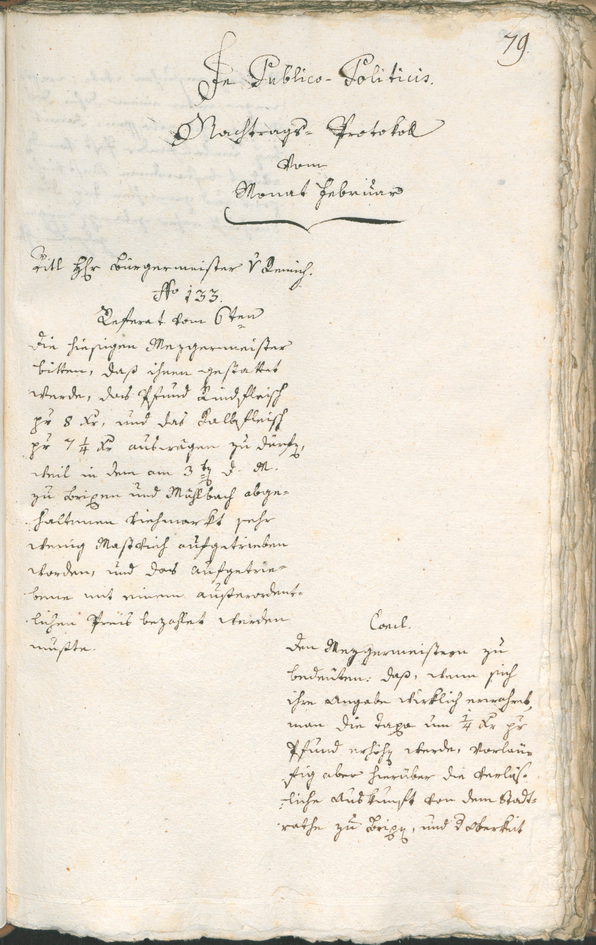 79
In Publico-Politicis.
Nachtrags-Protokoll
vom
Monat Februar
Titl Hr Bürgermeister v Remich.
No 133.
Referat vom 6ten
Die hiesigen Mezgermeister
bitten, daß ihnen gestattet
werde, das Pfund Rindfleisch
pr 8 Kr, und das Kalbfleisch
pr 7 1/4 Kr auswägen zu dürfen,
weil in dem am 3ten d. M.
zu Brixen und Mühlbach abge-
haltenen Viehmarkt sehr
wenig Mastvieh aufgetrieben
worden, und das aufgetrie-
bene mit einem außerordent-
lichen Preis bezahlet werden
mußte.
Concl.
Den Mezgermeistern zu
bedeuten: daß, wenn sich
ihre Angabe wirklich erwahret,
man die Taxa um 1/4 Kr pr
Pfund erhöhen werde, vorläu-
fig aber hierüber die verläs-
liche Auskunft von dem Stadt-
rathe zu Brixen, und der Obrigkeit